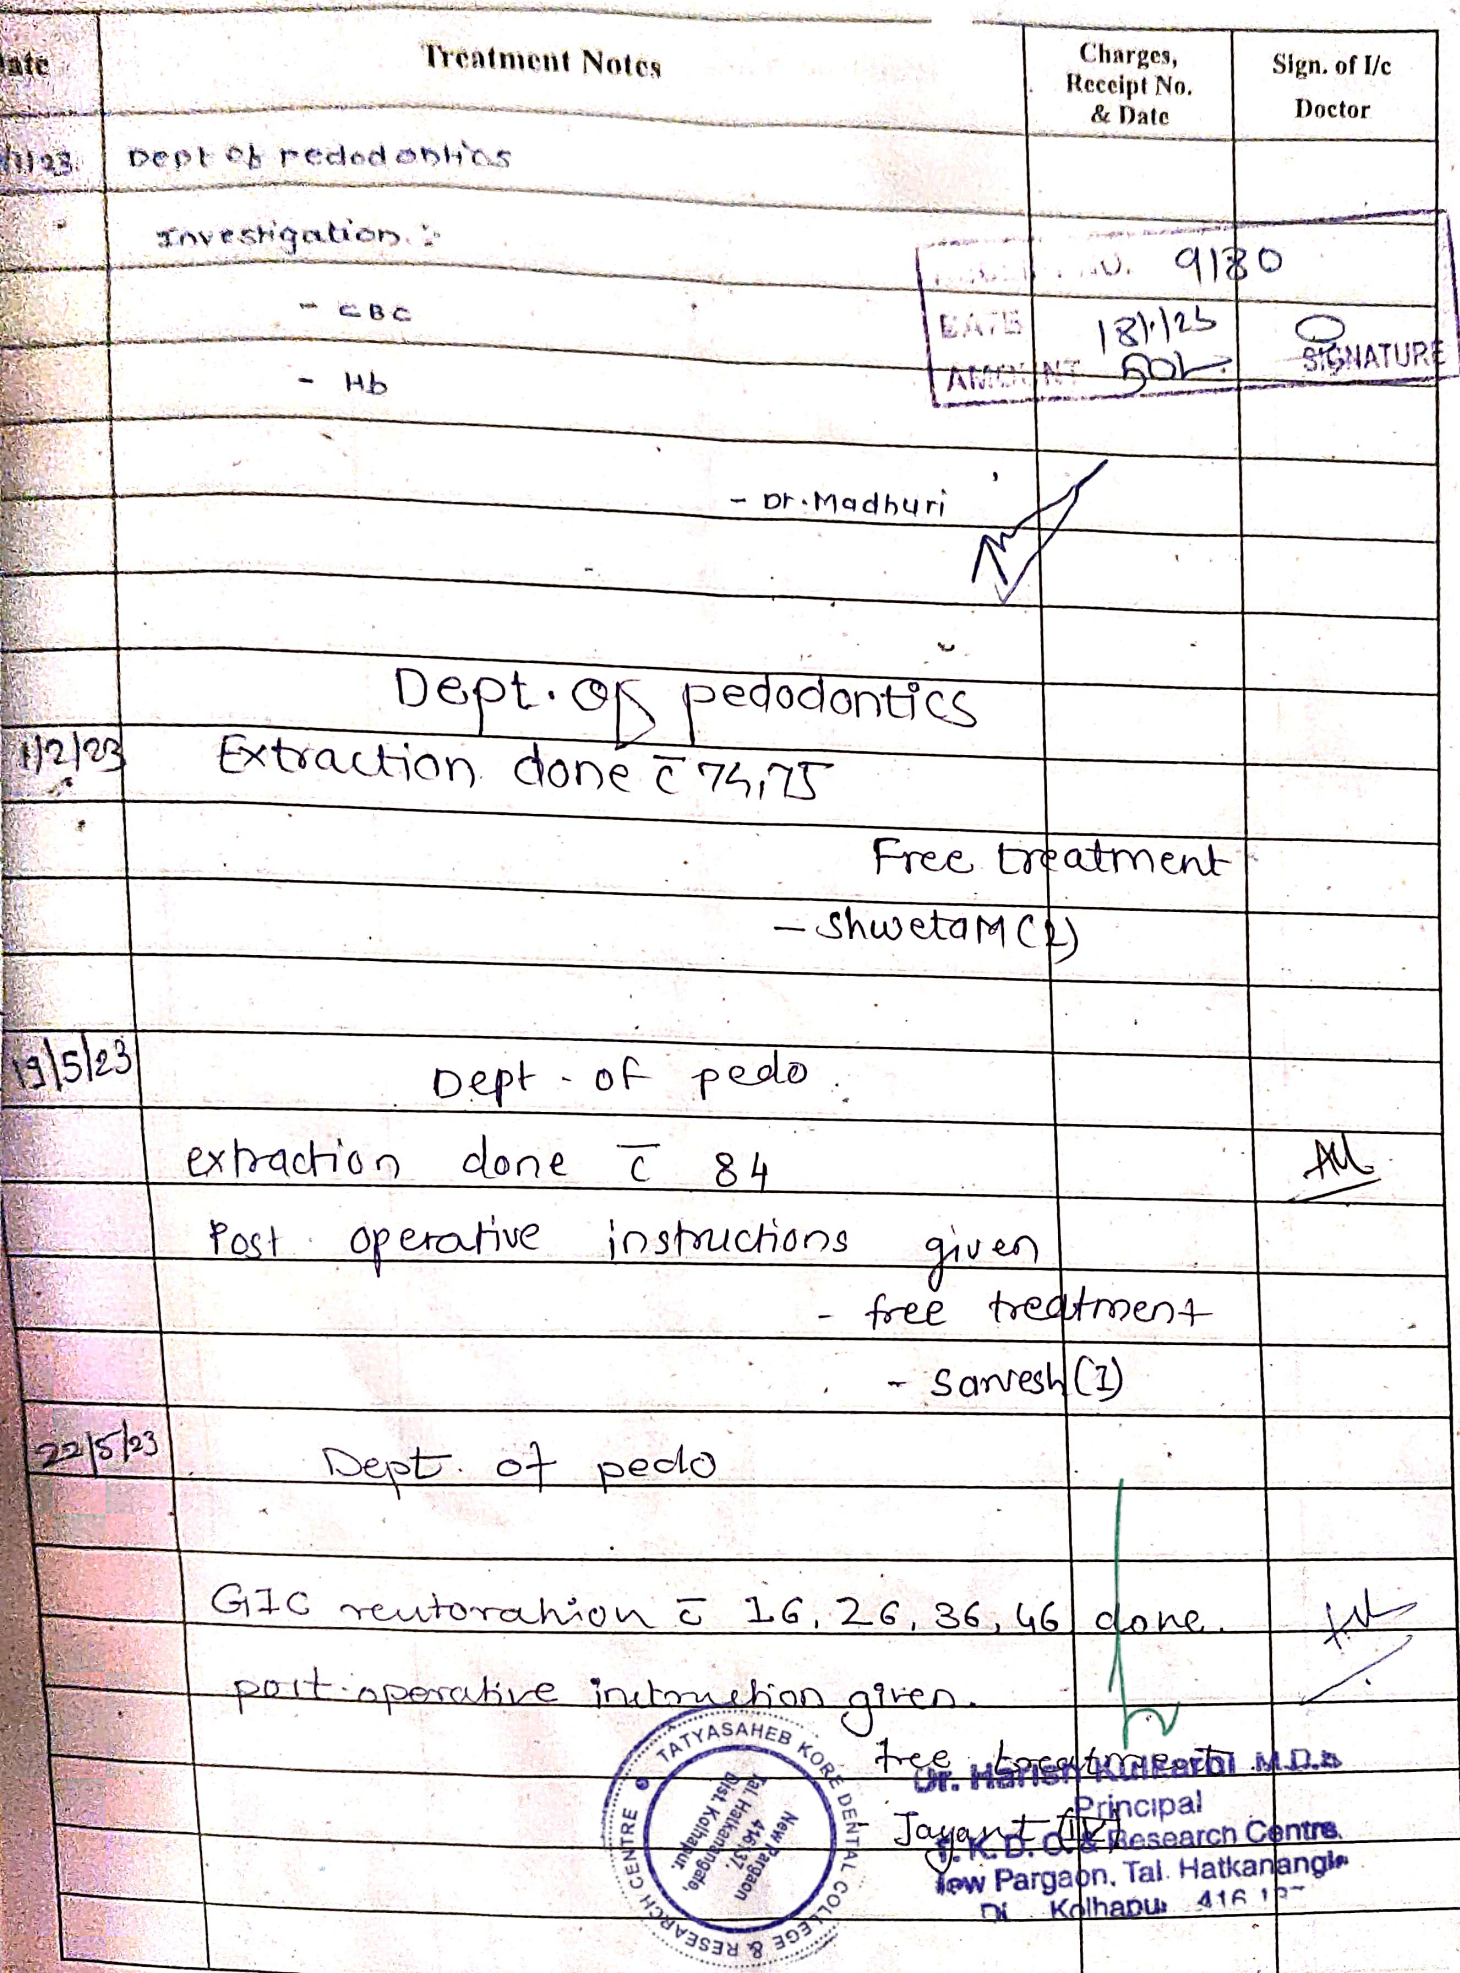 Treatment Notes
Charges,
Receipt No.
& Date
Sign. of I/c
Doctor
Dept of pedodontics
Investigation :-
9180
- CBC
DATE 18/1/23
AMOUNT SIGNATURE
- Hb
- Dr. Madhuri
Dept. of pedodontics
1/2/23 Extraction done c̄ 74,75
Free treatment
- Shweta M (I)
19/5/23 Dept. of pedo.
extraction done c̄ 84
Post operative instructions given
- free treatment
- Sarvesh (I)
22/5/23 Dept. of pedo
GIC restoration c̄ 16, 26, 36, 46 done.
post-operative instruction given.
free treatment
- Jayant
Dr. Harish Kulkarni M.D.S
Principal
T. K. D. C. & Research Centre.
New Pargaon, Tal. Hatkanangle
Kolhapur
TATYASAHEB KORE DENTAL COLLEGE & RESEARCH CENTRE
New Pargaon
416137,
Tal. Hatkanangale,
Dist. Kolhapur.